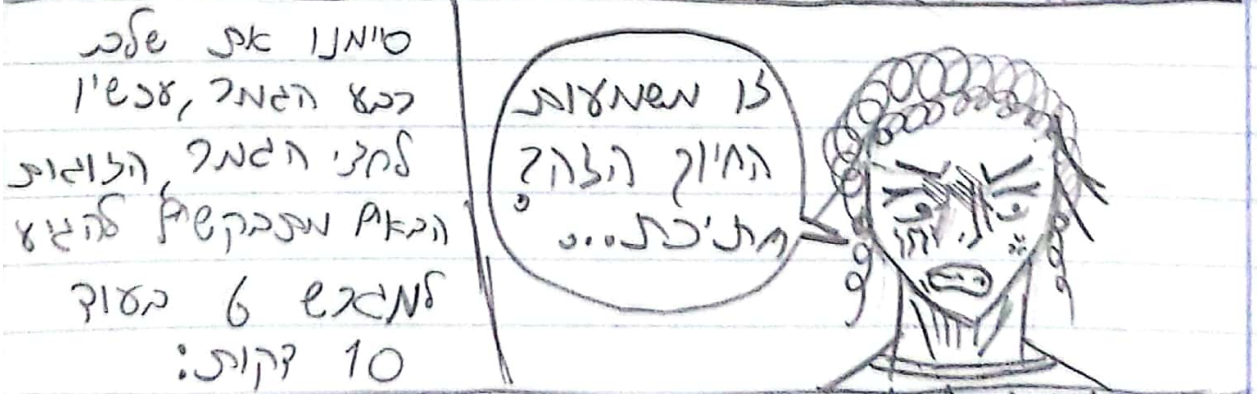 זו משמעות
החיוך הזה?
חתיכת...
סיימנו את שלב
רבע הגמר, עכשיו
לחצי הגמר, הזוגות
הבאים מתבקשים להגיע
למגרש 6 בעוד
10 דקות: